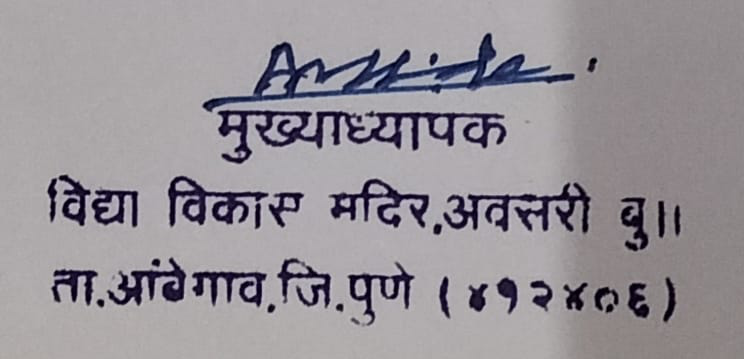 मुख्याध्यापक
विद्या विकास मदिर,अवसरी बु॥
ता.आंबेगाव,जि.पुणे (४१२४०६)